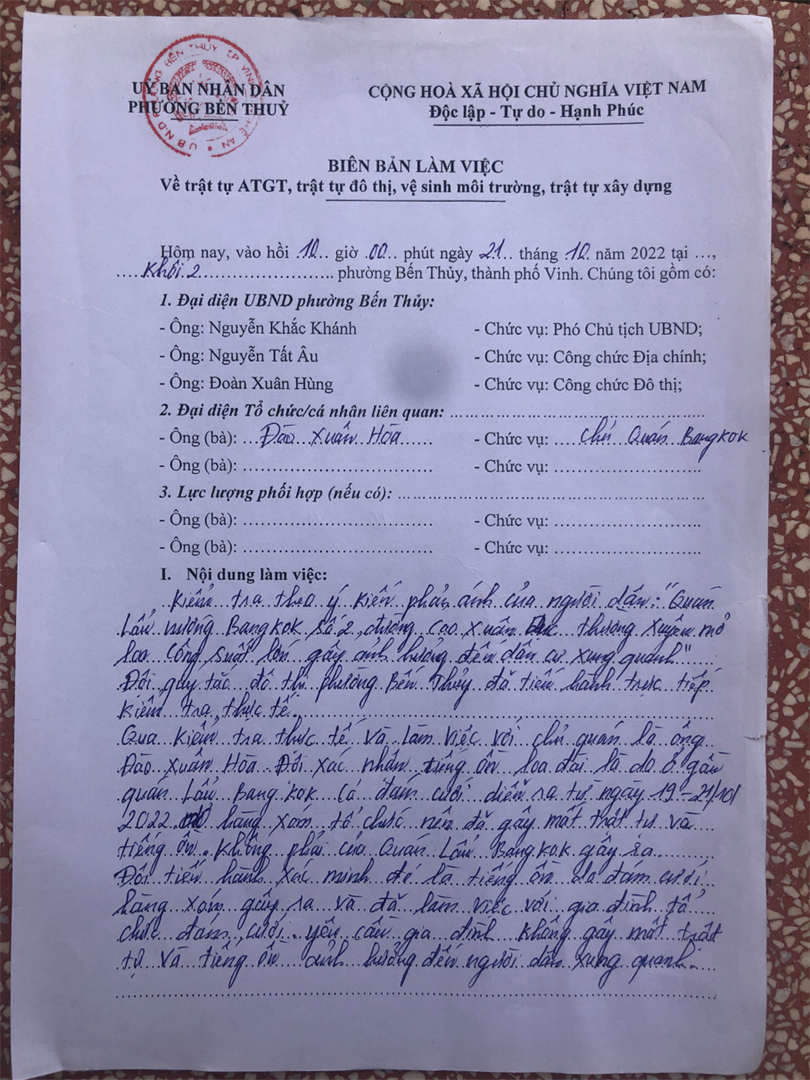 UỶ BAN NHÂN DÂN
PHƯỜNG BẾN THUỶ
CỘNG HOÀ XÃ HỘI CHỦ NGHĨA VIỆT NAM
Độc lập - Tự do - Hạnh Phúc
BIÊN BẢN LÀM VIỆC
Về trật tự ATGT, trật tự đô thị, vệ sinh môi trường, trật tự xây dựng
Hôm nay, vào hồi 10 giờ 00 phút ngày 21 tháng 10 năm 2022 tại ...,
Khối 2 phường Bến Thủy, thành phố Vinh. Chúng tôi gồm có:
1. Đại diện UBND phường Bến Thủy:
- Ông: Nguyễn Khắc Khánh - Chức vụ: Phó Chủ tịch UBND;
- Ông: Nguyễn Tất Âu - Chức vụ: Công chức Địa chính;
- Ông: Đoàn Xuân Hùng - Chức vụ: Công chức Đô thị;
2. Đại diện Tổ chức/cá nhân liên quan:
- Ông (bà): Đào Xuân Hòa - Chức vụ: Chủ Quán Bangkok
- Ông (bà): - Chức vụ:
3. Lực lượng phối hợp (nếu có):
- Ông (bà): - Chức vụ:
- Ông (bà): - Chức vụ:
I. Nội dung làm việc:
Kiểm tra theo ý kiến phản ánh của người dân: "Quán
Lẩu nướng Bangkok số 2, đường Cao Xuân Dục thường xuyên mở
loa công suất lớn gây ảnh hưởng đến dân cư xung quanh"
Đội quy tắc đô thị phường Bến Thủy đã tiến hành trực tiếp
kiểm tra thực tế.
Qua kiểm tra thực tế và làm việc với chủ quán là ông
Đào Xuân Hòa. Đội xác nhận tiếng ồn loa đài là do ở gần
quán Lẩu Bangkok có đám cưới diễn ra từ ngày 19-21/10/
2022 hàng xóm tổ chức nên đã gây mất trật tự và
tiếng ồn. Không phải của Quán Lẩu Bangkok gây ra.
Đội tiến hành xác minh đó là tiếng ồn do đám cưới
hàng xóm gây ra và đã làm việc với gia đình tổ
chức đám cưới. yêu cầu gia đình không gây mất trật
tự và tiếng ồn ảnh hưởng đến người dân xung quanh.